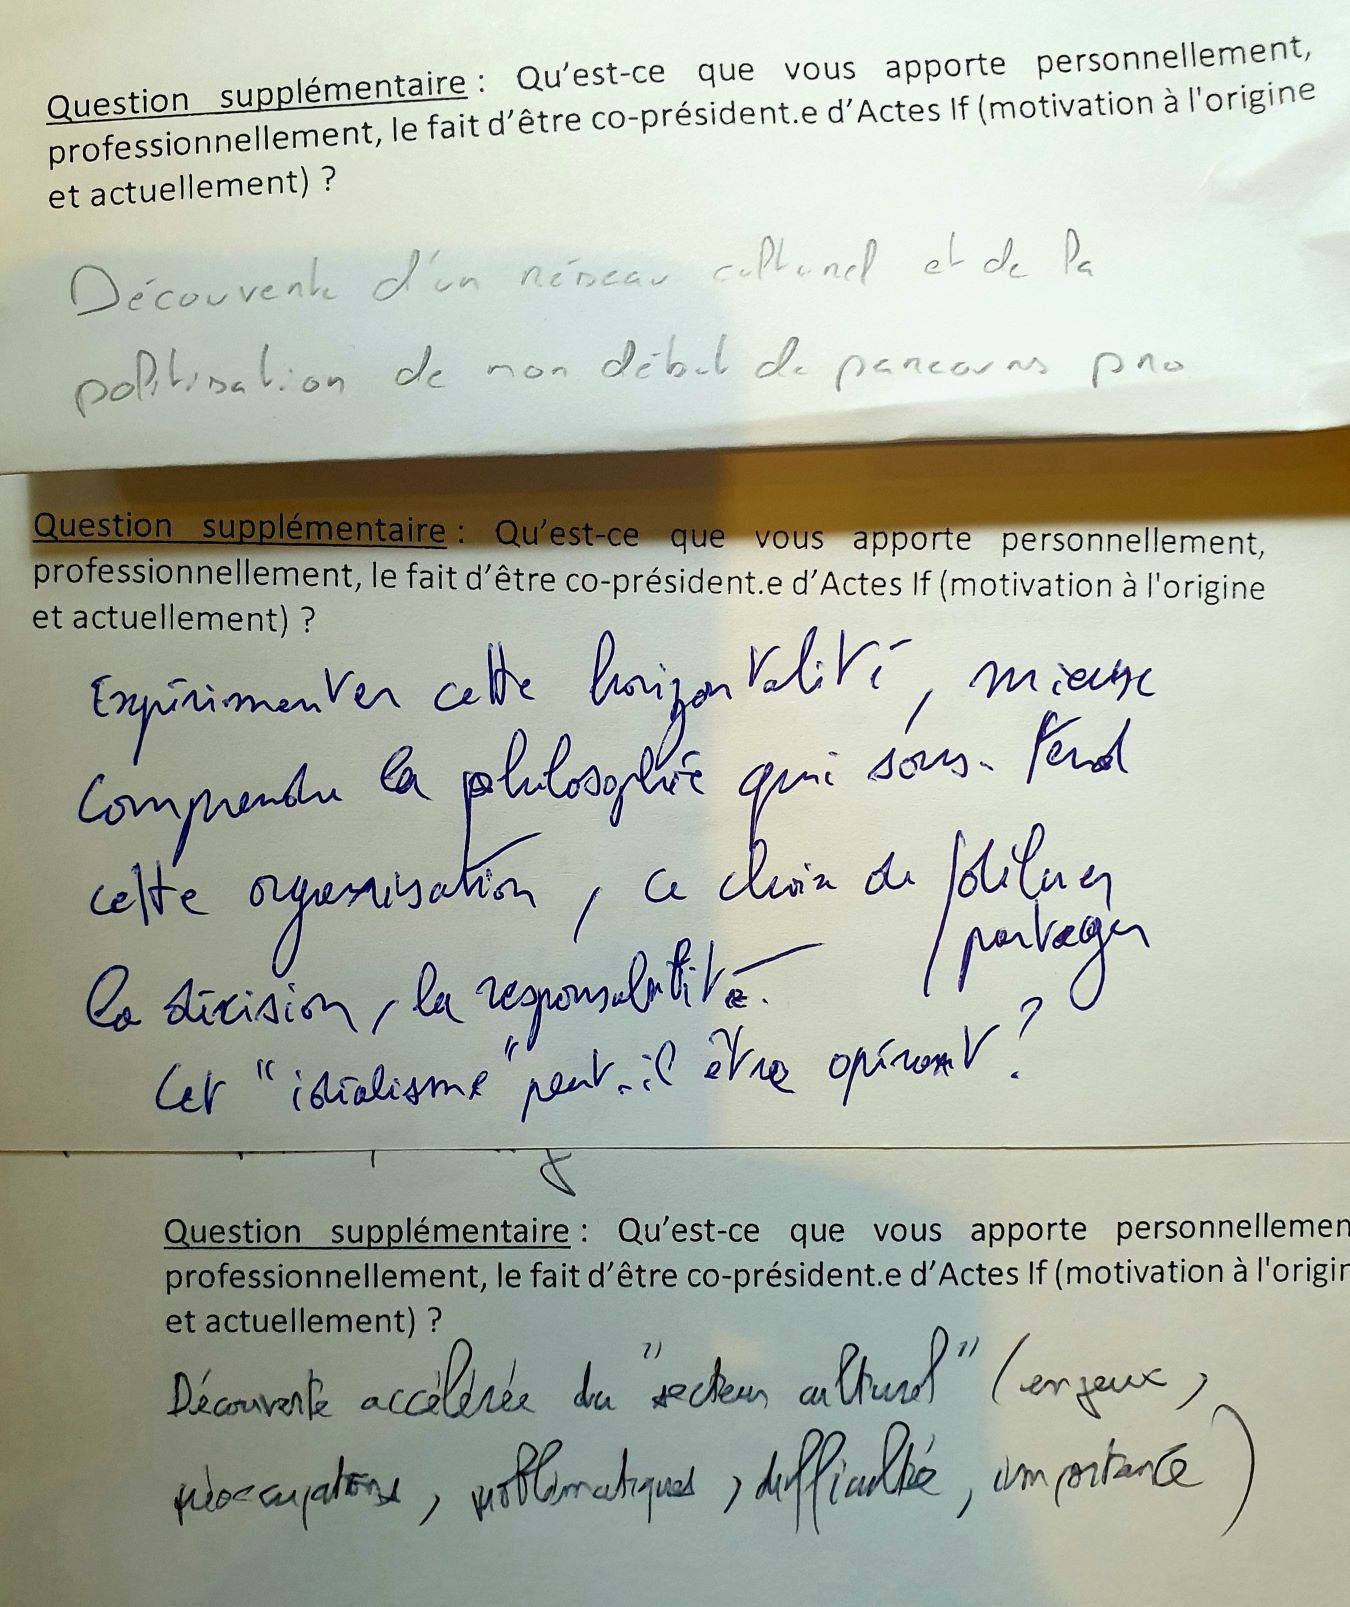 Question supplémentaire : Qu'est-ce que vous apporte personnellement,
professionnellement, le fait d'être co-président.e d'Actes If (motivation à l'origine
et actuellement) ?
Découverte d'un réseau culturel et de la
politisation de mon début de parcours pro
Question supplémentaire : Qu'est-ce que vous apporte personnellement,
professionnellement, le fait d'être co-président.e d'Actes If (motivation à l'origine
et actuellement) ?
Expérimenter cette horizontalité, mieux
comprendre la philosophie qui sous-tend
cette organisation, ce choix de / diluer
/ partager
la décision, la responsabilité.
Cet "idéalisme" peut-il être opérant ?
Question supplémentaire : Qu'est-ce que vous apporte personnellemen
professionnellement, le fait d'être co-président.e d'Actes If (motivation à l'origin
et actuellement) ?
Découverte accélérée du "secteur culturel" (enjeux,
préoccupations, problématiques, difficulté, importance)